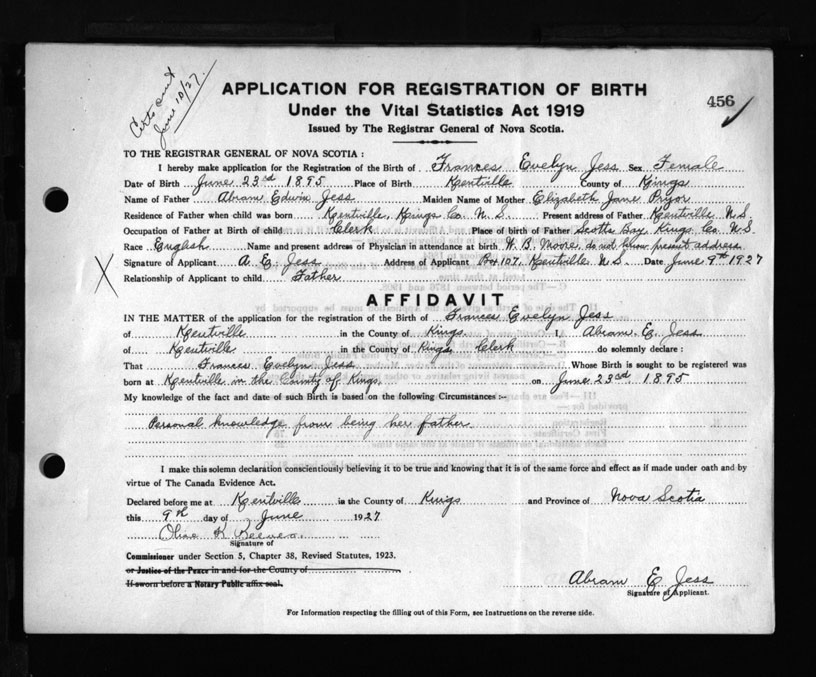 Certs sent
June 10/27.
APPLICATION FOR REGISTRATION OF BIRTH
456
Under the Vital Statistics Act 1919
Issued by The Registrar General of Nova Scotia.
TO THE REGISTRAR GENERAL OF NOVA SCOTIA :
I hereby make application for the Registration of the Birth of Frances Evelyn Jess Sex Female
Date of Birth June 23rd 1895 Place of Birth Kentville County of Kings
Name of Father Abram Edwin Jess Maiden Name of Mother Elizabeth Jane Pryor
Residence of Father when child was born Kentville, Kings Co. N.S. Present address of Father Kentville N.S.
Occupation of Father at Birth of child Clerk Place of birth of Father Scotts Bay, Kings Co. N.S.
Race English Name and present address of Physician in attendance at birth W. B. Moore, do not know present address
Signature of Applicant A. E. Jess Address of Applicant Box 107, Kentville N.S. Date June 9th 1927
X Relationship of Applicant to child Father
AFFIDAVIT
IN THE MATTER of the application for the registration of the Birth of Frances Evelyn Jess
of Kentville in the County of Kings I, Abram E. Jess
of Kentville in the County of Kings, Clerk do solemnly declare :
That Frances Evelyn Jess Whose Birth is sought to be registered was
born at Kentville in the County of Kings, on June 23rd 1895
My knowledge of the fact and date of such Birth is based on the following Circumstances :-
Personal knowledge from being her father
I make this solemn declaration conscientiously believing it to be true and knowing that it is of the same force and effect as if made under oath and by
virtue of The Canada Evidence Act.
Declared before me at Kentville in the County of Kings and Province of Nova Scotia
this 9th day of June 1927
Signature of
Commissioner under Section 5, Chapter 38, Revised Statutes, 1923.
or Justice of the Peace in and for the County of
If sworn before a Notary Public affix seal.
Abram E. Jess
Signature of Applicant.
For Information respecting the filling out of this Form, see Instructions on the reverse side.